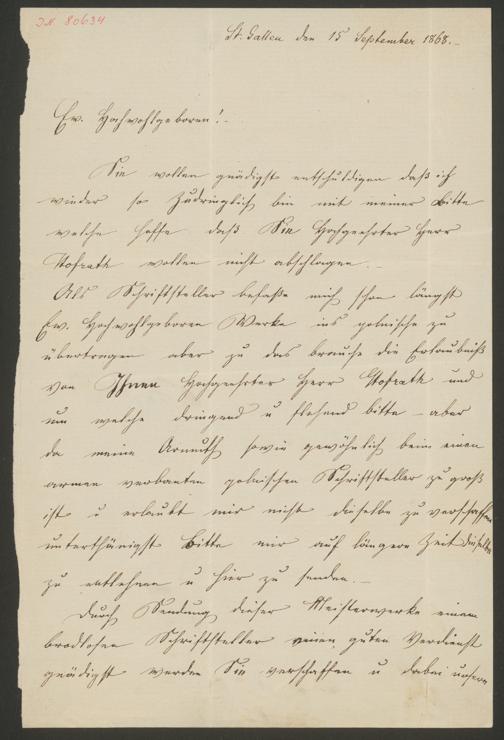 JN. 80634
St. Gallen den 15 September 1868.-
Ew. Hochwohlgeboren!-
Sie wollen gnädigst entschuldigen daß ich
wieder so zudringlich bin mit meiner Bitte
welche hoffe daß Sie Hochgeehrter Herr
Hofrath wollen nicht abschlagen.-
Als Schriftsteller befaße mich schon längst
Ew. Hochwohlgeboren Werke ins polnische zu
übertragen aber zu das brauche die Erlaubniß
von Ihnen Hochgeehrter Herr Hofrath und
um welche dringend u flehend bitte - aber
da meine Armuth sowie gewöhnlich beim einen
armen verbanten polnischen Schriftsteller zu groß
ist u erlaubt mir nicht dieselbe zu verschaffen
unterthänigst bitte mir auf längere Zeit dieselbe
zu entlehnen u hier zu senden.-
Durch Sendung dieser Meisterwerke einem
brodlosen Schriftsteller einen guten Verdienst
gnädigst werden Sie verschaffen u dabei unsere